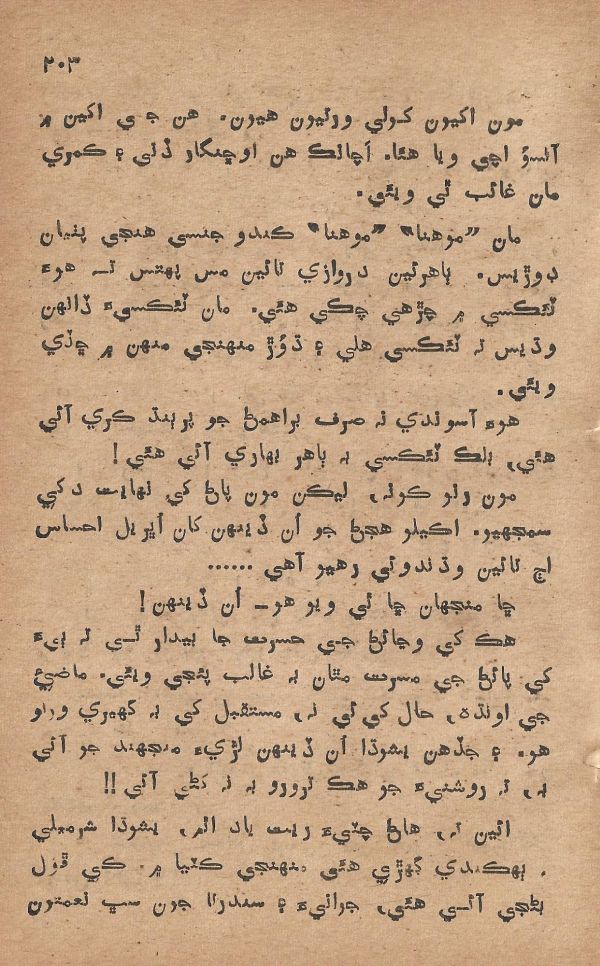 ۲۰۳
مون اکيون کولي ورتيون هيون. هن جي اکين ۾
آنسو اچي ويا هئا. اَچانڪ هن اوڇنگار ڏني ۽ ڪمري
مان غائب ٿي ويئي.
مان ”موهنا“ ”موهنا“ ڪندو جنسي هنجي پٺيان
ڊوڙيس. ٻاهرئين دروازي تائين مس پهتس تہ هوءَ
ٽئڪسي ۾ چڙهي چڪي هئي. مان ٽئڪسيءَ ڏانهن
وڌيس تہ ٽئڪسي هلي ۽ ڌُوڙ منهنجي منهن ۾ ڇڏي
ويئي.
هوءَ آسوندي نہ صرف براهمڻ جو پربنڌ ڪري آئي
هئي، بلڪ ٽئڪسي بہ ٻاهر بهاري آئي هئي!
مون رنو ڪونہ، ليڪن مون پاڻ کي نهايت دکي
سمجهيو. اڪيلو هجڻ جو اُن ڏينهن کان اُڀريل احساس
اڄ تائين وڌندوئي رهيو آهي ......
ڇا منجهان ڇا ٿي ويو هو_ اُن ڏينهن!
هڪ کي وڃائڻ جي حسرت جا بيدار ٿي تہ ٻيءَ
کي پائڻ جي مسرت مٿان بہ غالب پئجي ويئي. ماضيءَ
جي اونڌه، حال کي ئي نہ، مستقبل کي بہ گهيري ورتو
هو. ۽ جڏهن يشوڌا اُن ڏينهن لڙيءَ منجهند جو آئي
بہ، تہ روشنيءَ جو هڪ ترورو بہ نہ کڻي آئي!!
ائين تہ، هاڻ چٽيءَ ريت ياد اٿم، يشوڌا شرميلي
. ٻهڪندي گهڙي هئي منهنجي ڪٽيا ۾. کي ڦول
بڻجي آئي هئي، جوانيءَ ۽ سندرتا جون سڀ نعمتون